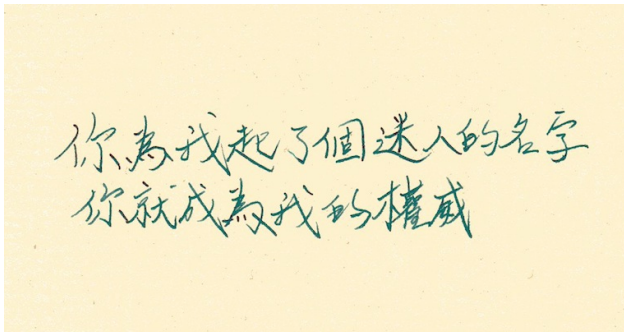 你為我起了個迷人的名字
你就成為我的權威